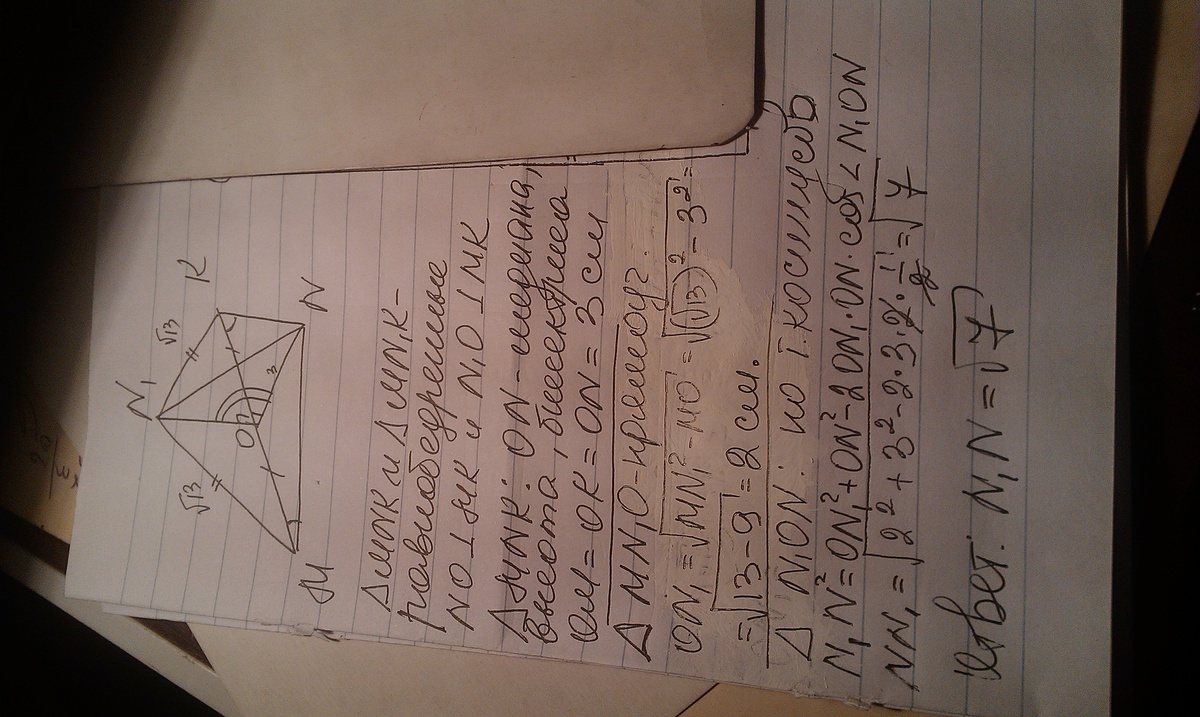 N₁
√13
√13
К
O
3
М
N
ΔMNK и ΔMN₁K –
равнобедренные
NO ⊥ MK и N₁O ⊥ MK
ΔMNK: ON – медиана,
высота, биссектриса
OM = OK = ON = 3 см
Δ MN₁O – прямоуг.
ON₁ = √MN₁² – MO² = √(√13)² – 3² =
= √13 – 9 = 2 см.
Δ N1ON: по т. косинусов
N₁N² = ON₁² + ON² – 2ON₁·ON·cos∠N₁ON
NN₁ = √2² + 3² – 2·3·2·1/2 = √7
Ответ: N₁N = √7